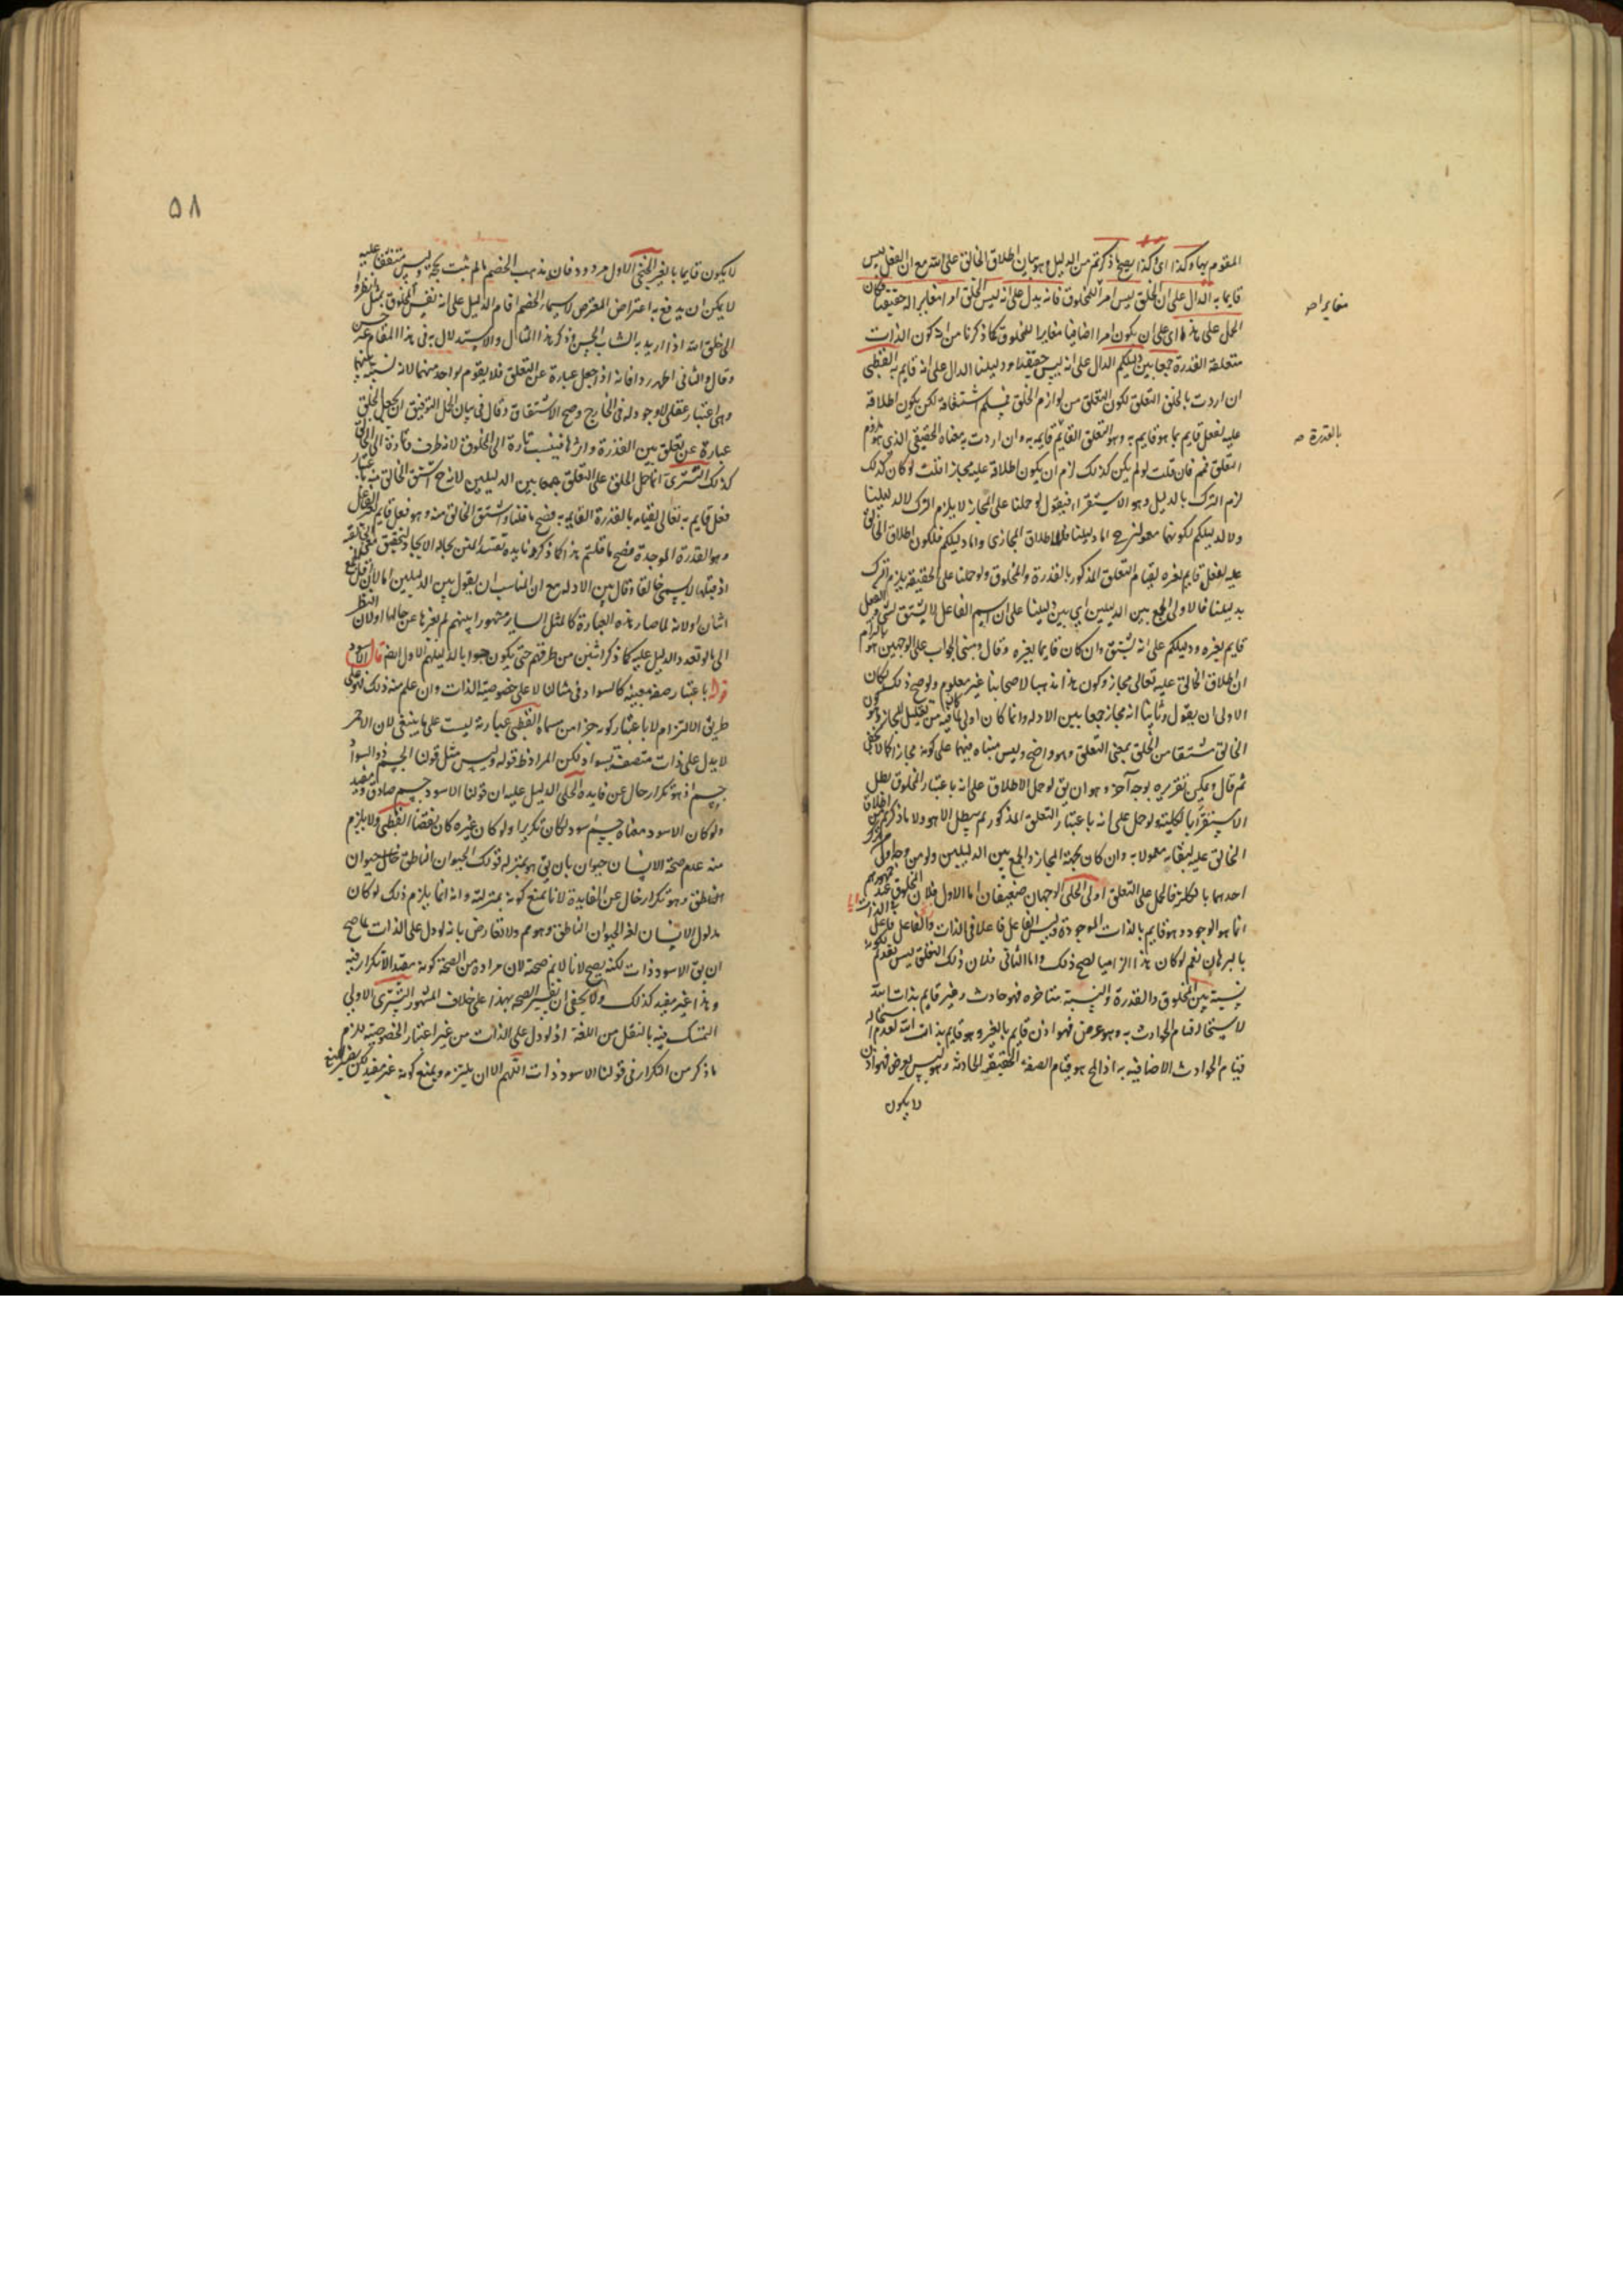 المقوم بها وكذا اى وكذا يصح ما ذكرتم من الدليل وهو بيان اطلاق الخالق على الله مع ان الفعل ليس
قايما به الدال على ان الخلق ليس امرا للمخلوق فانه يدل على انه ليس الخلق امرا مغايرا حقيقيا فكان
الحمل على هذا اى على ان يكون امرا اضافيا مغايرا للمخلوق كما ذكرنا من انه كون الذات
متعلقة القدرة جمعا بين دليلكم الدال على انه ليس حقيقيا ودليلنا الدال على انه قايم به القطبى
ان اردت بالخلق التعلق لكون التعلق من لوازم الخلق فيلم اشتقاقه لكن يكون اطلاقه
عليه لفعل قايم بما هو قايم به وهو التعلق القايم قايم به وان اردت به معناه الحقيقى الذى هو ملزوم
التعلق فنم فان قلت لو لم يكن كذلك لزم ان يكون اطلاقه عليه مجازا قلت لو كان كذلك
لزم الترك بالدليل وهو الاستقراء فيقول لو حملنا على المجاز لا يلزم الترك لا لدليلنا
ولا لدليلكم لكونهما معمولين ح اما دليلنا فلاطلاق المجازى واما دليلكم فلكون اطلاق الخالق
عليه لفعل قايم بغيره لقيام التعلق المذكور بالقدرة والمخلوق ولو حملنا على الحقيقة يلزم الترك
بدليلنا فالاولى الجمع بين الدليلين اى بين دليلنا على ان اسم الفاعل لا يشتق لشى والفعل
قايم بغيره ودليلكم على انه يشتق وان كان قايما بغيره وقال ومبنى الجواب على الوجهين هو التزام
ان اطلاق الخالق عليه تعالى مجاز وكون هذا مذهبا لاصحابنا غير معلوم ولو صح ذلك لكان
الاولى ان يقول وثانيا انه مجاز جمعا بين الادلة وانما كان اولى لما فيه من تعليل المجاز وهو كون
الخالق مشتقا من الخلق بمعنى التعلق وهو واضح وليس مبناه فيهما على كونه مجازا كما لا يخفى
ثم قال ويمكن تقريره بوجه آخر وهو ان يق لو حمل الاطلاق على انه باعتبار المخلوق بطل
الاستقراء بالكلية ولو حمل على انه باعتبار التعلق المذكور لم يبطل الا هو ولا ما ذكرتم من اطلاق
الخالق عليه لبقائه معمولا به وان كان بجهة المجاز والجمع بين الدليلين ولو من وجه اولى من ترك
احدهما بالكلية فالحمل على التعلق اولى الحلى الوجهان ضعيفان اما الاول فلان المخلوق عند جمهورهم
انما هو الوجود وهو قايم بالذات الموجودة وليس الفاعل فاعلا فى الذات والفاعل فاعل
بالبرهان نعم لو كان هذا الزاميا لصح ذلك واما الثانى فلان ذلك التعلق ليس بقديم لكونه
نسبة بين المخلوق والقدرة والنسبة متاخرة فهو حادث وغير قايم بذات الله
لاستحالة قيام الحوادث به وهو عرض فهو اذن قايم بالغير وهو قايم بذات الله لعدم استحالة
قيام الحوادث الاضافية به اذ المح هو قيام الصفة الحقيقية الحادثة وهو ليس بعرض فهو اذن
لا يكون
مغايرا صح
بالقدرة صح
٥٨
لا يكون قايما بالغير الخنجى الاول مردود فان مذهب الخصم ما لم يثبت بحجة وليس متفقا عليه
لا يمكن ان يدفع به اعتراض المعترض لا سيما والخصم اقام الدليل على انه نفس المخلوق بمثل انظروا
الى خلق الله اذا اريد به الشاب الحسن فذكر هذا المثال والاستدلال به فى هذا المقام غير حسن
وقال والثانى اظهر ردا فانه اذا جعل عبارة عن التعلق فلا يقوم بواحد منهما لانه نسبة بينهما
وهى اعتبار عقلى لا وجود له فى الخارج وصح الاشتقاق وقال فى بيان الحل التوفيق ان يجعل الخلق
عبارة عن تعلق بين القدرة واثرها فينسب تارة الى المخلوق لانه طرف وتارة الى الخالق
كذلك التسترى انما حمل الخلق على التعلق جمعا بين الدليلين لانه ح اشتق الخالق منه باعتبار
فعل قايم به تعالى لقيامه بالقدرة القايمة به فصح ما قلنا واشتق الخالق منه وهو فعل قايم
وهو القدرة الموجدة فصح ما قلتم هذا كما ذكره
اذ قبلها لا يسمى خالقا وقال بين الادلة مع ان المناسب ان يقول بين الدليلين
اثنان او لانه لما صار هذه العبارة كالمثل السايرة مشهورا بينهم لم يغيرها عن حالها او لان النظر
الى ما لو تعدد الدليل عليه كما ذكر اثنين من طرفهم حتى يكون جوابا لدليلهم الاول ايضا قال الاسود
قوله باعتبار صفة معينة كالسواد فى مثالنا لا على خصوصية الذات وان علم منه ذلك فهو على
طريق الالتزام لا باعتبار كونه جزءا من مسماه القطبى عبارته ليست على ما ينبغى لان الاحمر
لا يدل على ذات متصفة بسواد لكن المراد ظ قوله وليس مثل قولنا الجسم ذو السواد
جسم اذ هو تكرار خال عن فايدة الحلى الدليل عليه ان قولنا الاسود جسم صادق ومفيد
ولو كان الاسود معناه جسم اسود لكان تكريرا ولو كان غيره كان نقضا القطبى ولا يلزم
منه عدم صحة الانسان حيوان بان يق هو بمنزلة قولك الحيوان الناطق حيوان
الناطق وهو تكرار خال عن الفايدة لانا نمنع كونه بمنزلته وانه انما يلزم ذلك لو كان
مدلول الانسان لغة الحيوان الناطق وهو مم ولا تعارض بانه لو دل على الذات لما صح
ان يق الاسود ذات لكنه يصح لانا لا نم صحته لان مراده من الصحة كونه مفيدا لا تكرار فيه
وهذا غير مفيد كذلك ولا يخفى ان تفسير الصحة بهذا على خلاف المشهور التسترى الاولى
التمسك فيه بالنقل من اللغة اذ لو دل على الذات من غير اعتبار الخصوصية للزم
ما ذكر من التكرار فى قولنا الاسود ذات اللهم الا ان يلتزمه ويمنع كونه غير مفيد